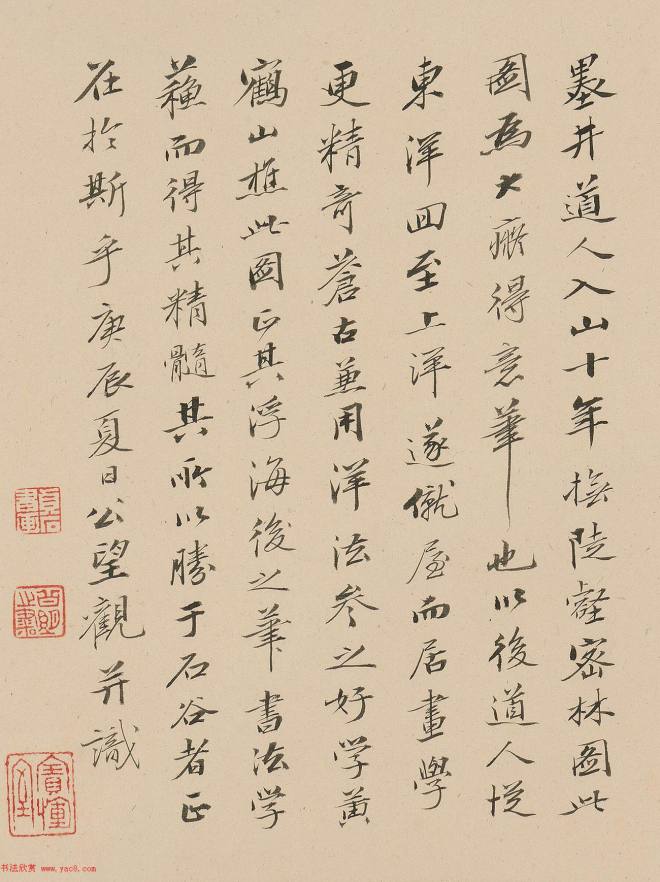 墨井道人入山十年撫陡壑密林圖此
圖為大癡得意筆也以後道人從
東洋回至上洋遂僦屋而居畫學
更精奇蒼古兼用洋法參之好學黃
鶴山樵此圖正其浮海後之筆書法學
蘓而得其精髓其所以勝于石谷者正
在於斯乎庚辰夏日公望觀并識
书法欣赏 www.yac8.com